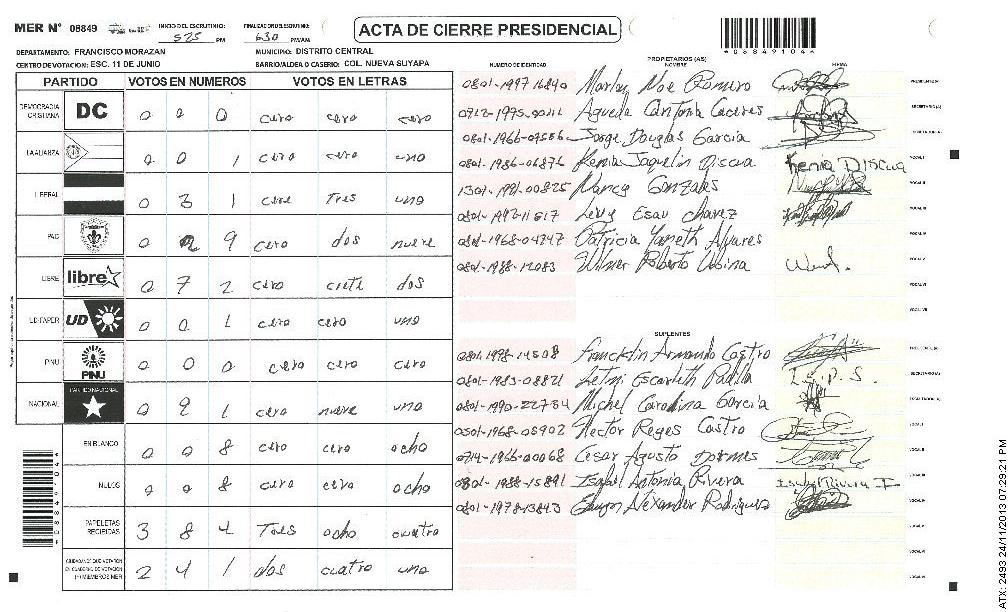 MER N° 08849 INICIO DEL ESCRUTINIO: 525 PM FINALIZACION DEL ESCRUTINIO: 630 PM/AM ACTA DE CIERRE PRESIDENCIAL *08849104*
DEPARTAMENTO: FRANCISCO MORAZAN MUNICIPIO: DISTRITO CENTRAL
CENTRO DE VOTACION: ESC. 11 DE JUNIO BARRIO/ALDEA O CASERIO: COL. NUEVA SUYAPA
PARTIDO VOTOS EN NUMEROS VOTOS EN LETRAS
DEMOCRACIA CRISTIANA DC 0 0 0 cero cero cero
LA ALIANZA 0 0 1 cero cero uno
LIBERAL 0 3 1 cero Tres uno
PAC 0 2 9 cero dos nueve
LIBRE libre 0 7 2 cero ciete dos
UD-FAPER UD 0 0 1 cero cero uno
PINU PINU 0 0 0 cero cero cero
NACIONAL PARTIDO NACIONAL 0 9 1 cero nueve uno
EN BLANCO 0 0 8 cero cero ocho
NULOS 0 0 8 cero cero ocho
PAPELETAS RECIBIDAS 3 8 4 Tres ocho cuatro
CIUDADANOS QUE VOTARON EN CUADERNO DE VOTACION (+) MIEMBROS MER 2 4 1 dos cuatro uno
PROPIETARIOS (AS)
NUMERO DE IDENTIDAD NOMBRE FIRMA
0801-1997-16840 Marlon Noe Romero PRESIDENTE(A)
0712-1975-00211 Agueda Cantonia Caceres SECRETARIO(A)
0801-1966-09586 Jorge Douglas Garcia ESCRUTADOR(A)
0801-1986-06876 Kenia Jaquelin Discua Kenia Discua VOCAL I
1301-1991-00825 Nancy Gonzales VOCAL II
0801-1992-11617 Levy Esau Chavez VOCAL III
0801-1968-04247 Patricia Yaneth Alvares VOCAL IV
0801-1988-12083 Wilmer Roberto Urbina VOCAL V
VOCAL VI
VOCAL VII
SUPLENTES
0801-1998-14508 Francklin Armando Castro PRESIDENTE(A)
0801-1983-08821 Letmi Escarleth Padilla L.E.P.S. SECRETARIO(A)
0801-1990-22734 Michel Carolina Garcia ESCRUTADOR(A)
0501-1968-05902 Hector Reyes Castro VOCAL I
0714-1966-00068 Cesar Agusto Dormes VOCAL II
0801-1988-15891 Isabel Antonia Rivera Isabel Rivera VOCAL III
0801-1978-13843 Edwyn Alexander Rodriguez VOCAL IV
VOCAL V
VOCAL VI
VOCAL VII
ATX: 2493 24/11/2013 07:29:21 PM